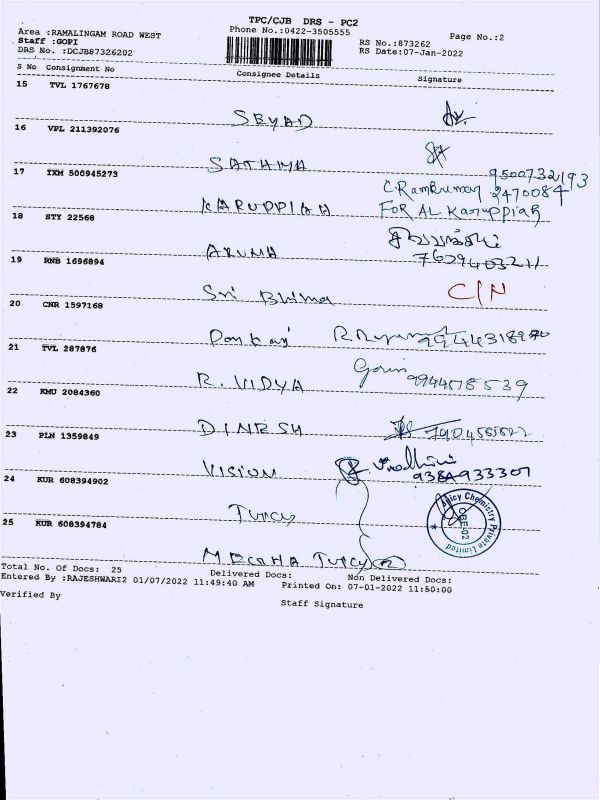 TPC/CJB DRS - PC2
Area :RAMALINGAM ROAD WEST Phone No.:0422-3505555 Page No.:2
Staff :GOPI RS No.:873262
DRS No. :DCJB87326202 RS Date:07-Jan-2022
S No Consignment No Consignee Details Signature
15 TVL 1767678
SEYAD
16 VPL 211392076
SATHYA
17 IXM 500945273 9500732193
C.Ramkumar 2470084
KARUPPIAH FOR AL Karuppiah
18 STY 22568
ARUNA
19 RNB 1696894
Sri Bhima C/N
20 CNR 1597168
Pankaj
21 TVL 287876
R. VIDYA 9944578539
22 KMU 2084360
DINESH
23 PLN 1359849
VISION
24 KUR 608394902
Juicy
25 KUR 608394784
MEGHA Juicy (2)
Juicy Chemistry Private Limited
CBE-02
Total No. Of Docs: 25 Delivered Docs: Non Delivered Docs:
Entered By :RAJESHWARI2 01/07/2022 11:49:40 AM Printed On: 07-01-2022 11:50:00
Verified By Staff Signature